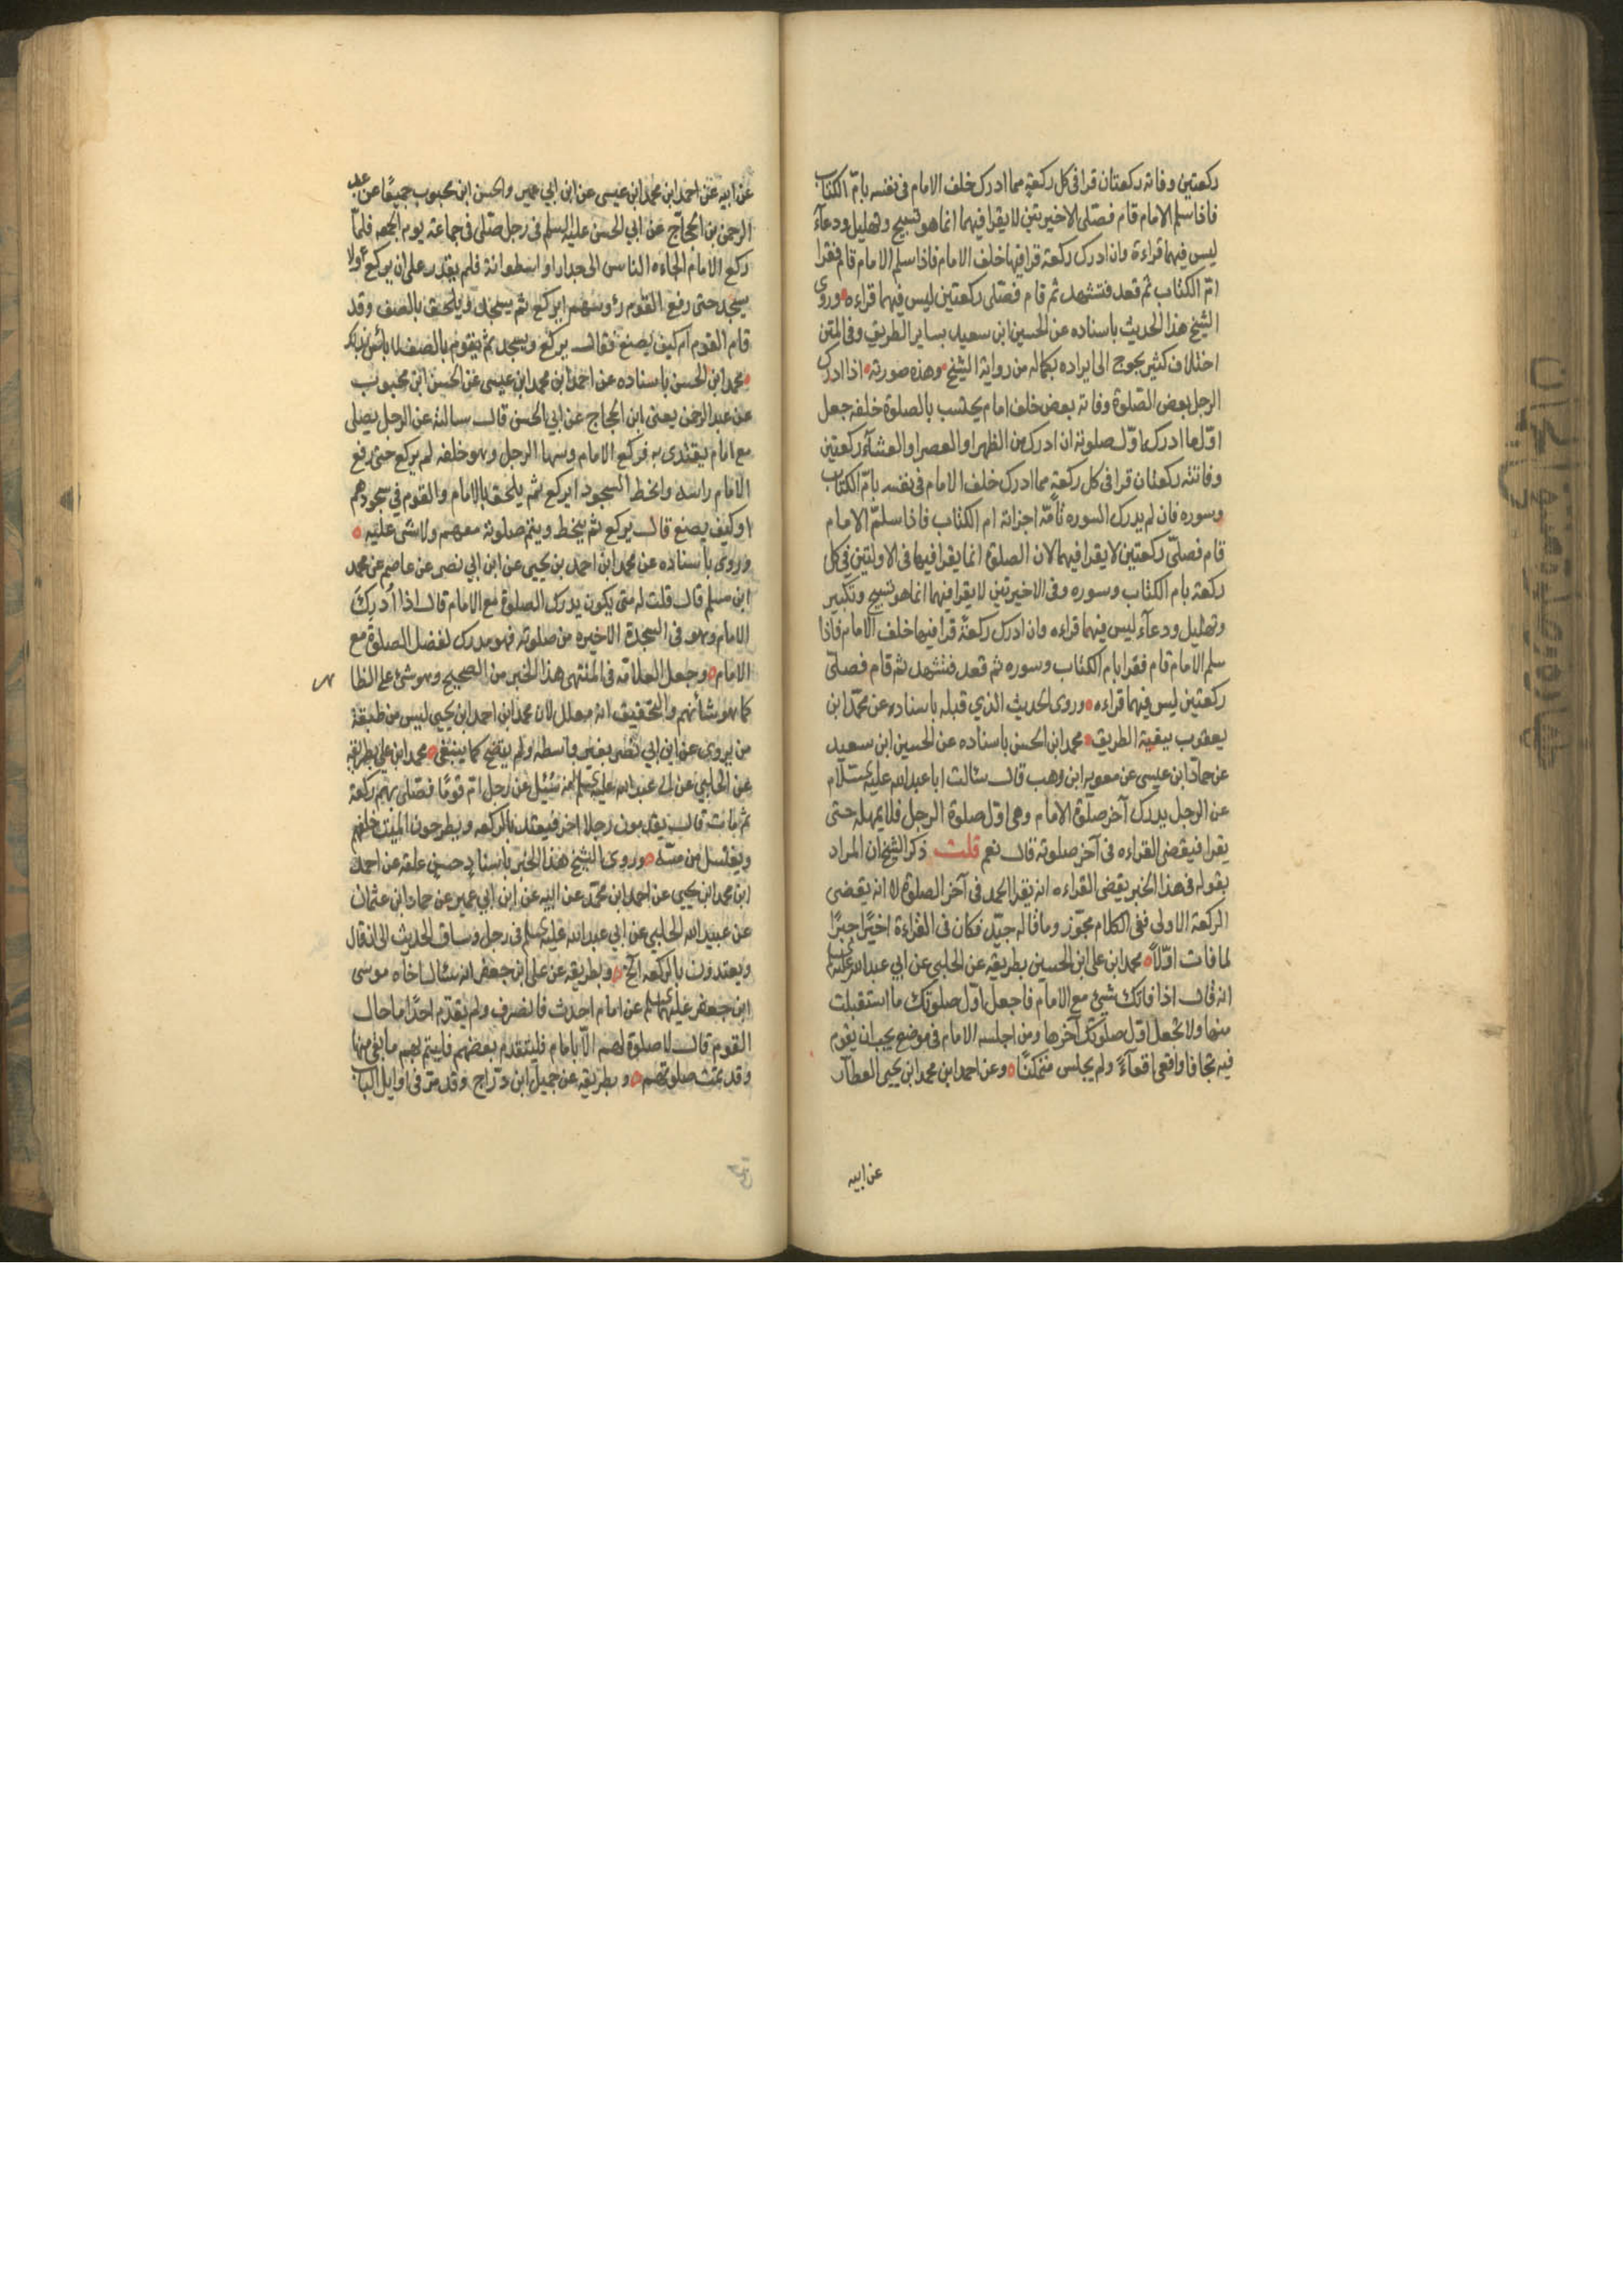 ركعتين وفاته ركعتان قرا فى كل ركعة مما ادرك خلف الامام فى نفسه بامّ الكتاب
فاذا سلم الامام قام فصلى الاخيرتين لا يقرا فيهما انما هو تسبيح وتهليل ودعاء
ليس فيهما قراءة وان ادرك ركعة قرا فيها خلف الامام فاذا سلم الامام قام فقرا
امّ الكتاب ثم قعد فتشهد ثم قام فصلى ركعتين ليس فيهما قراءه وروى
الشيخ هذا الحديث باسناده عن الحسين ابن سعيد بساير الطريق وفى المتن
اختلاف كثير يحوج الى ايراده بكماله من رواية الشيخ وهذه صورته اذا ادرك
الرجل بعض الصلوة وفاته بعض خلف امام يحتسب بالصلوة خلفه جعل
اوّل ما ادرك اوّل صلوته ان ادرك من الظهر او العصر او العشاء ركعتين
وفاتته ركعتان قرا فى كل ركعة مما ادرك خلف الامام فى نفسه بامّ الكتاب
وسوره فان لم يدرك السوره تامّة اجزاته ام الكتاب فاذا سلمّ الامام
قام فصلىّ ركعتين لا يقرا فيهما لان الصلوة انما يقرا فيها فى الاولتين فى كل
ركعة بام الكتاب وسوره وفى الاخيرتين لا يقرا فيهما انما هو تسبيح وتكبير
وتهليل ودعاء ليس فيهما قراءه وان ادرك ركعة قرا فيها خلف الامام فاذا
سلم الامام قام فقرا بام الكتاب وسوره ثم قعد فتشهد ثم قام فصلى
ركعتين ليس فيهما قراءه وروى الحديث الذي قبله باسناده عن محمّد ابن
يعقوب ببقية الطريق محمد ابن الحسن باسناده عن الحسين ابن سعيد
عن حماد ابن عيسى عن معويه ابن وهب قال سالت ابا عبد الله عليه السّلام
عن الرجل يدرك آخر صلوة الامام وهى اوّل صلوة الرجل فلا يمهله حتى
يقرا فيقضى القراءه فى آخر صلوته قال نعم قلت ذكر الشيخ ان المراد
بقوله فى هذا الخبر يقضى القراءه انه يقرا الحمد فى آخر الصلوة لا انه يقضى
الركعة الاولى ففى الكلام تجوّز وما قاله جيّد فكان فى القراءة اخيرًا جبرًا
لما فات اوّلاً محمد ابن على ابن الحسين بطريقه عن الحلبى عن ابي عبد الله عليه السلم
انه قال اذا فاتك شئ مع الامام فاجعل اوّل صلوتك ما استقبلت
منها ولا تجعل اوّل صلوتك آخرها ومن اجلسه الامام فى موضع يجب ان يقوم
فيه تجافا واقعى اقعاءً ولم يجلس متمكنًا وعن احمد ابن محمد ابن يحيى العطار
عن ابيه
عن ابيه عن احمد ابن محمد ابن عيسى عن ابن ابي عمير والحسن ابن محبوب جميعًا عن عبد
الرحمن بن الحجاج عن ابي الحسن عليه السلم فى رجل صلى فى جماعة يوم الجمعه فلمّا
ركع الامام الجاءه الناس الى جدار او اسطوانة فلم يقدر على ان يركع ولا
يسجد حتى رفع القوم رؤوسهم ايركع ثم يسجد ويلحق بالصف وقد
قام القوم ام كيف يصنع فقال يركع ويسجد ثم يقوم بالصف لا باس بذلك
محمد ابن الحسن باسناده عن احمد ابن محمد ابن عيسى عن الحسن ابن محبوب
عن عبد الرحمن يعنى ابن الحجاج عن ابي الحسن قال سالته عن الرجل يصلى
مع امام يقتدى به فركع الامام وسها الرجل وهو خلفه لم يركع حتى رفع
الامام راسه وانحط السجود ايركع ثم يلحق بالامام والقوم فى سجودهم
او كيف يصنع قال يركع ثم ينحط ويتم صلوته معهم ولا شى عليه
وروى باسناده عن محمد ابن احمد بن يحيى عن ابن ابي نصر عن عاصم عن محمد
ابن مسلم قال قلت له متى يكون يدرك الصلوة مع الامام قال اذا ادرك
الامام وهو فى السجدة الاخيره من صلوته فهو مدرك لفضل الصلوة مع
الامام وجعل العلاّمه فى المنتهى هذا الخبر من الصحيح وهو شئ على الظا
كما هو شانهم والتحقيق انه معلل لان محمد ابن احمد ابن يحيى ليس من طبقة
من يروى عن ابن ابي نصر بغير واسطه ولم يتضح كما ينبغى محمد ابن على بطريقه
عن الحلبي عن ابى عبد الله عليه السلم انه سُئل عن رجل امّ قومًا فصلى بهم ركعة
ثم مات قال يقدمون رجلا اخر فيعتد بالركعه ويطرحون الميت خلفهم
ويغتسل من مسّه وروى الشيخ هذا الخبر باسناد حسن علقه عن احمد
ابن محمد ابن يحيى عن احمد ابن محمّد عن ابيه عن ابن ابي عمير عن حماد ابن عثمان
عن عبيد الله الحلبي عن ابي عبد الله عليه السلم فى رجل وساق الحديث الى ان قال
ويعتدون بالركعه الخ وبطريقه عن على ابن جعفر انه سال اخاه موسى
ابن جعفر عليهما السلم عن امام احدث فانصرف ولم يقدّم احدًا ما حال
القوم قال لا صلوة لهم الاّ بامام فليتقدم بعضهم فليتم بهم ما بقى منها
وقد تمت صلوتهم وبطريقه عن جميل ابن درّاج وقد مرّ فى اوايل الباب